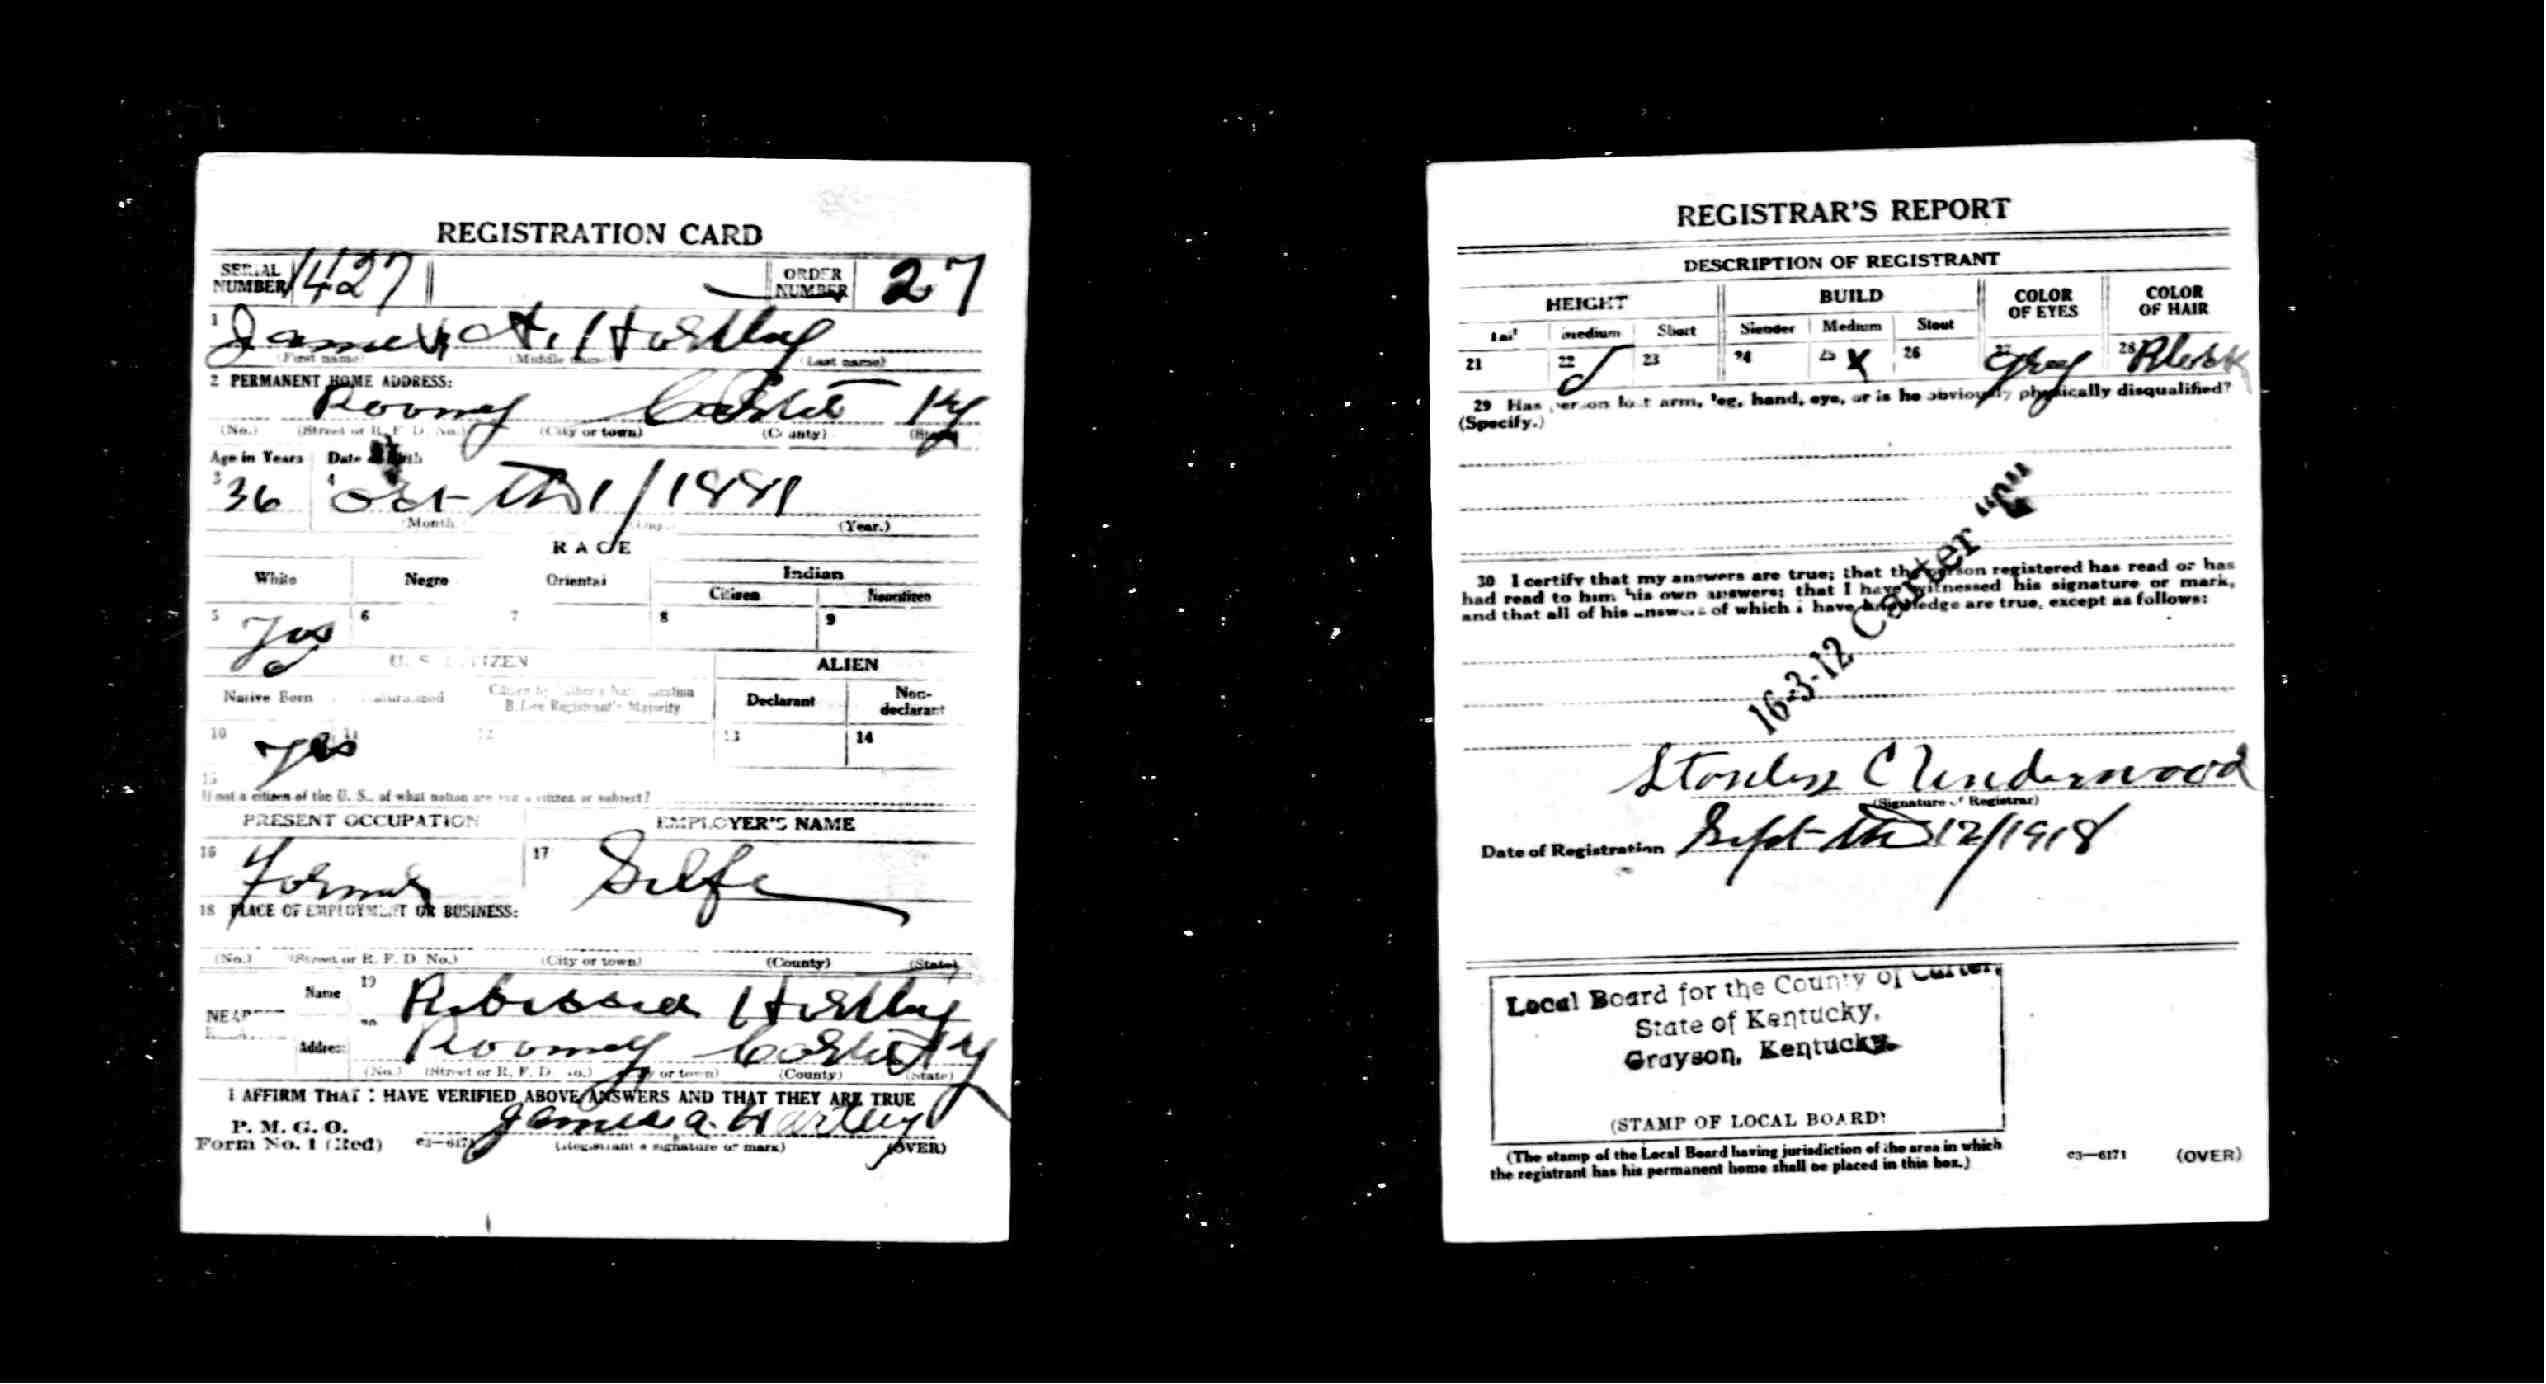 REGISTRATION CARD
SERIAL NUMBER 1427 ORDER NUMBER 27
1 James A. Hartley
(First name) (Middle name) (Last name)
2 PERMANENT HOME ADDRESS:
Rooney Carter Ky
(No.) (Street or R. F. D. No.) (City or town) (County) (State)
Age in Years Date of Birth
3 36 4 Oct th 1/1881
(Month) (Day.) (Year.)
RACE
White Negro Oriental Indian
Citizen Noncitizen
5 Yes 6 7 8 9
U. S. CITIZEN ALIEN
Native Born Naturalized Citizen by Father's Naturalization Before Registrant's Majority Declarant Non-declarant
10 yes 11 12 13 14
15
If not a citizen of the U. S., of what nation are you a citizen or subject?
PRESENT OCCUPATION EMPLOYER'S NAME
16 Farmer 17 Selfe
18 PLACE OF EMPLOYMENT OR BUSINESS:
(No.) (Street or R. F. D. No.) (City or town) (County) (State)
Name 19 Hartley
NEAREST
Address 20 Rooney Carter Ky
(No.) (Street or R. F. D. No.) (City or town) (County) (State)
I AFFIRM THAT I HAVE VERIFIED ABOVE ANSWERS AND THAT THEY ARE TRUE
P. M. G. O.
Form No. 1 (Red) c3—6171 James A. Hartley
(Registrant's signature or mark) (OVER)
REGISTRAR'S REPORT
DESCRIPTION OF REGISTRANT
HEIGHT BUILD COLOR OF EYES COLOR OF HAIR
Tall Medium Short Slender Medium Stout
21 22 23 24 25 X 26 27 Grey 28 Black
29 Has person lost arm, leg, hand, eye, or is he obviously physically disqualified?
(Specify.)
30 I certify that my answers are true; that the person registered has read or has
had read to him his own answers; that I have witnessed his signature or mark,
and that all of his answers of which I have knowledge are true, except as follows:
16-3-12 Carter "C"
C Underwood
(Signature of Registrar)
Date of Registration Sept th 12/1918
Local Board for the County of Carter,
State of Kentucky,
Grayson, Kentucky.
(STAMP OF LOCAL BOARD)
(The stamp of the Local Board having jurisdiction of the area in which
the registrant has his permanent home shall be placed in this box.)
c3—6171 (OVER)